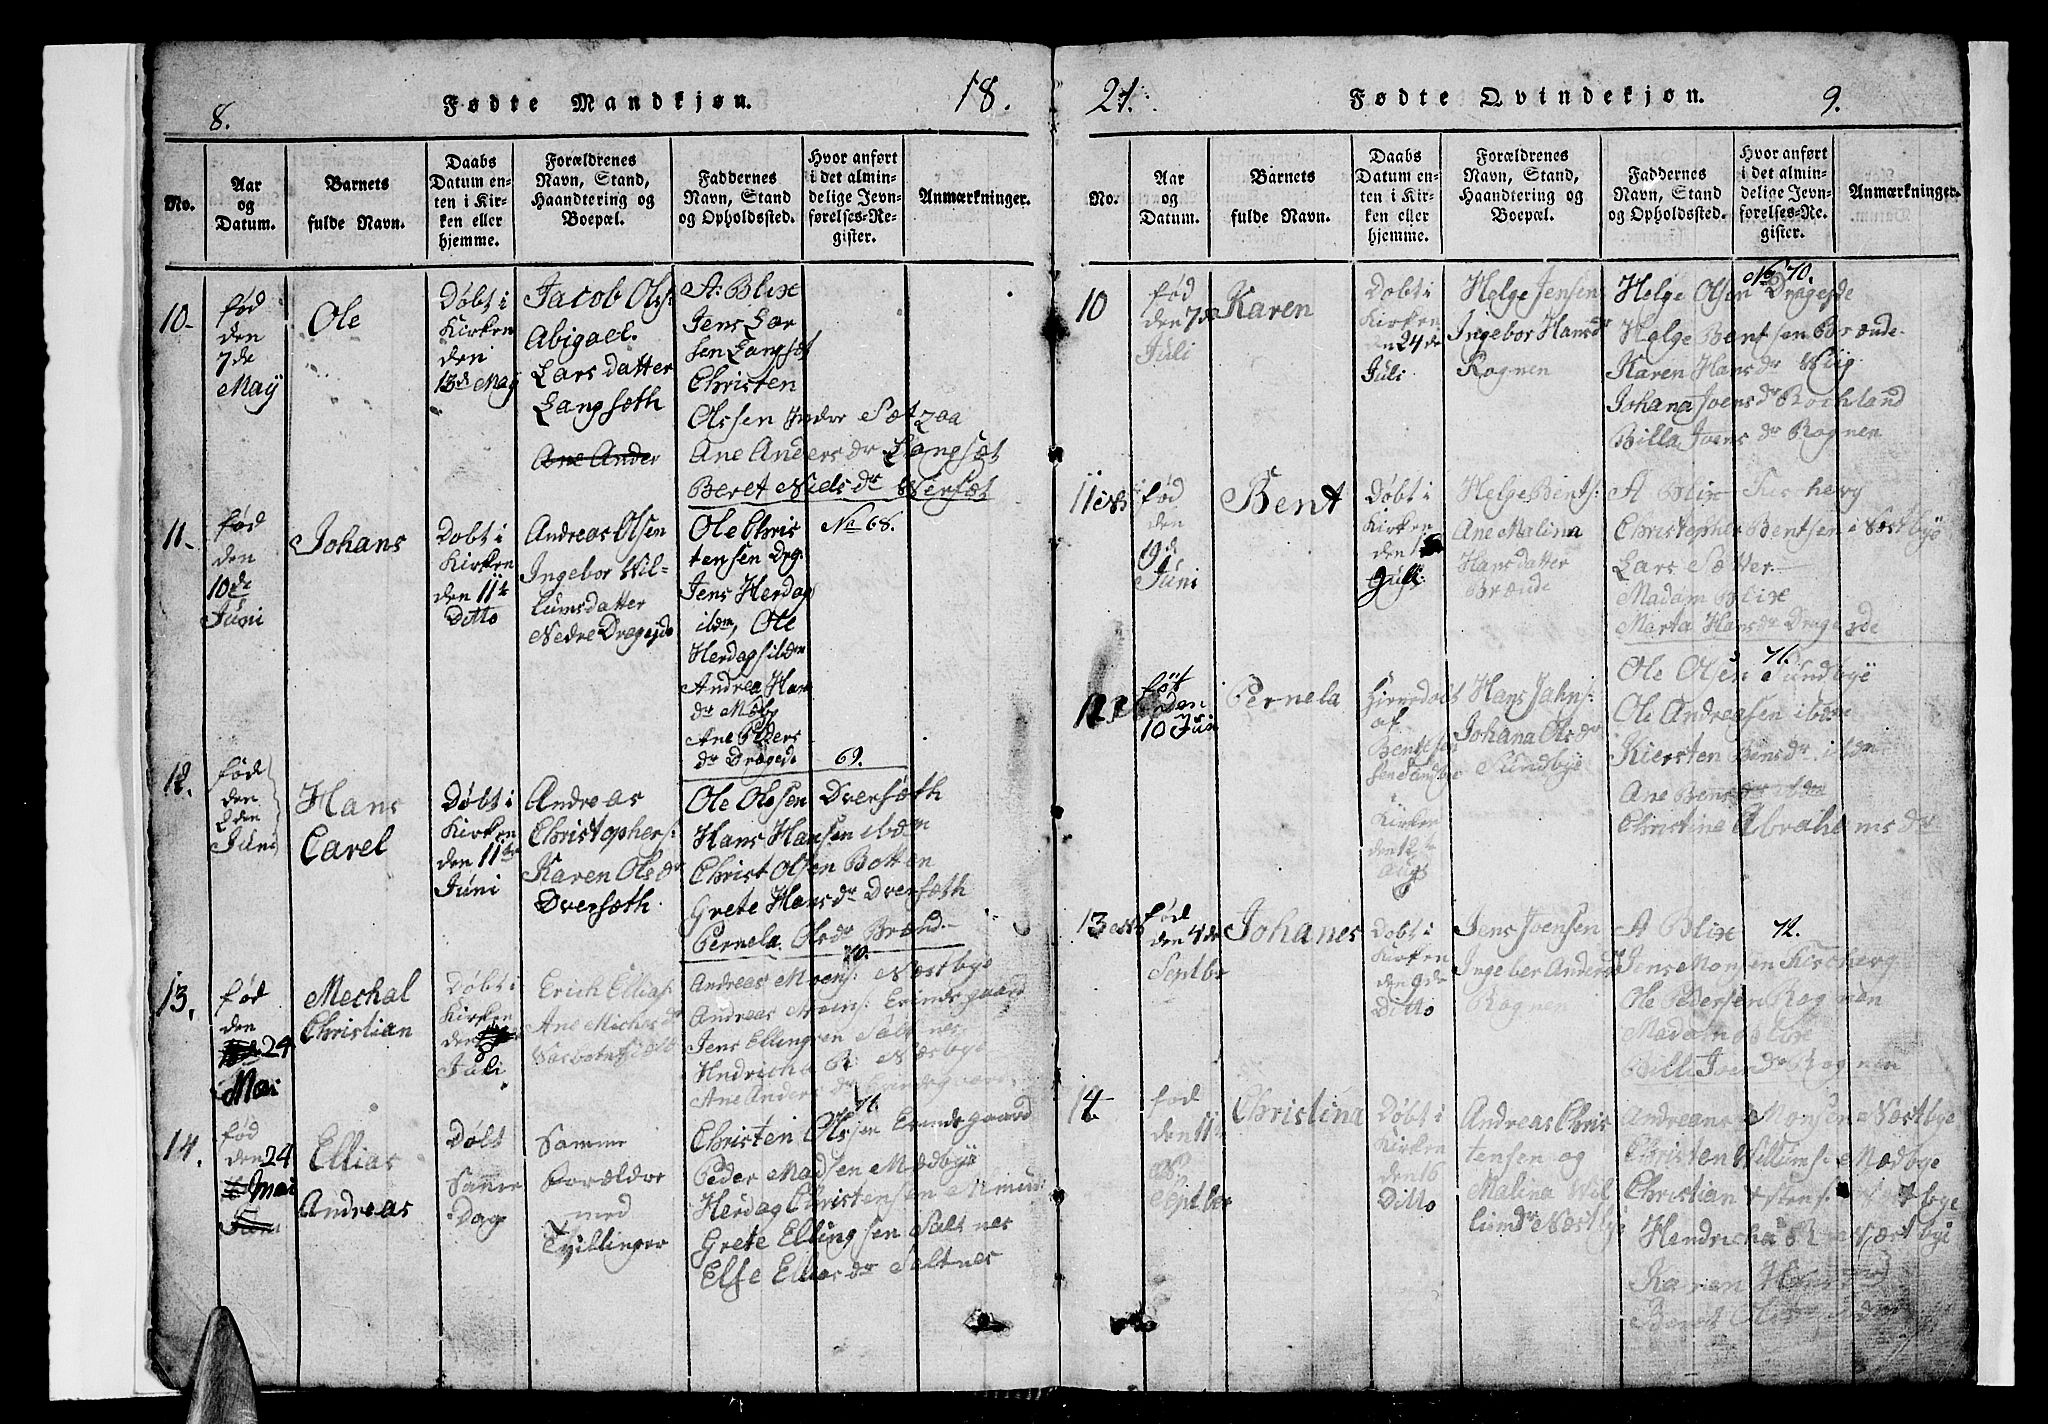 8.
Fødte Mandkjøn.
18.
No.
Aar
og
Datum.
Barnets
fulde Navn.
Daabs
Datum en-
ten i Kir-
ken eller
hjemme.
Forældrenes
Navn, Stand,
Haandtering og
Boepæl.
Faddernes
Navn, Stand
og Opholdssted.
Hvor anført
i det almin-
delige Jevn-
førelses-Re-
gister.
Anmærkninger.
10-
fød
den
7de
Maÿ
Ole
Døbt i
Kirken
den
13de Maÿ
Jacob Ols:
Abigael.
Lars datter
Langsæth
Ane Ander
A: Blix
Jens Lar
sen Langsæt
Christen
Olssen Sætzaa
Ane Anders dr Langsæt
Beret Niels dr
11-
fød
den
10de
Juni
Johans
Dobt i
Kirken
den 11te
Ditto
Andreas Olsen
Ingebor Wil-
lumsdatter
Nedre Dragejde
Ole Chris
tensen Drg.
Jens Herdag
ibdm, Ole
Herdags ibdm
Andrea Han
dr Mebÿ
Ane Peders
dr Dragede
No 68.
12.
fød
den
den
Juni
Hans
Carel
Døbt i
Kirken
den 11te
Juni
Andreas
Christophers:
Karen Ols dr
Dversæth
69.
Ole Olssen Dversæth
Hans Hansen ibdm
Christ Olsen Botten
Grete Hans dr Dversæth
Pernela Ols dr Brænd-
13.
fød
den
24
Mai
Mechal
Christian
Døbt i
Kirken
den
Juli
Erich Ellias:
Ane Michels dr
70.
Andreas Moens: Næstbye
Andreas Moens: Evindsgaard
Jens Ellingsen Saltnes
Hndricha R: Næsbye
Ane Anders dr Evindsgaard
14.
fød
den 24
Mai
Juni
Ellias
Andreas
Døbt
Same
Dag
Samme
Forældre
med
Tvillinger
71.
Christen Olssen Evindsgaard
Peder Madsen Mædbye
Herdag Christensen
Grete Ellingsen Saltnes
Else Ellias dr Saltnes
21.
Fødte Qvindekjøn.
9.
No.
Aar
og
Datum.
Barnets
fulde Navn.
Daabs
Datum en-
ten i Kir-
ken eller
hjemme.
Forældrenes
Navn, Stand,
Haandtering og
Boepæl.
Faddernes
Navn, Stand
og Opholdssted.
Hvor anført
i det almin-
delige Jevn-
førelses-Re-
gister.
Anmærkninger.
10
fød
den 7de
Juli
Karen
Døbt i
Kirken
den 24de
Juli
Helge Jensen
Ingebor Hansdr
Rognen
No 70.
Helge Olsen Dragejde
Helge Bentsen Brænde
Karen Hans dr Wiig
Johana Joens dr Rochland
Billa Joens dr Rognen
11
fød
den
19de
Juni
Bent
Døbt i
Kirken
den
Juli
Helge Bents:
Ane Malina
Hansdatter
Brænde
A Blix
Christopher Bentsen i Næstbye
Lars Sætter
Madam Blix
Marta Hans dr Dragejde
12
føt
den
10 Juni
Pernela
af
Bent
Kirken
den 12te
Aug
Hans Jahns:
Johana Ols dr
Sundbye
71.
Ole Olsen Sundbye
Ole Andreasen ibdm
Kiersten Bens dr ibdm
Ane Bens dr ibdm
Christine Abrahams dr
13
fød
den 4de
Septbr
Johanes
Døbt i
Kirken
den 9de
Ditto
Jens Joensen
Ingeber Anders
Rognen
A Blix
72.
Jens Monsen
Ole Pedersen Rognen
Madam Blix
Billi Joen dr Rognen
14
fød
den 11te
Septber
Christina
Døbt i
Kirken
den 16
Ditto
Andreas Chris
tensen og
Malina Wil
lum dr Næstbÿe
Andreans Monsen Næstbye
Christen Willums: Mædbye
Christian
Hendricha R Næstbye
Karen
Berit